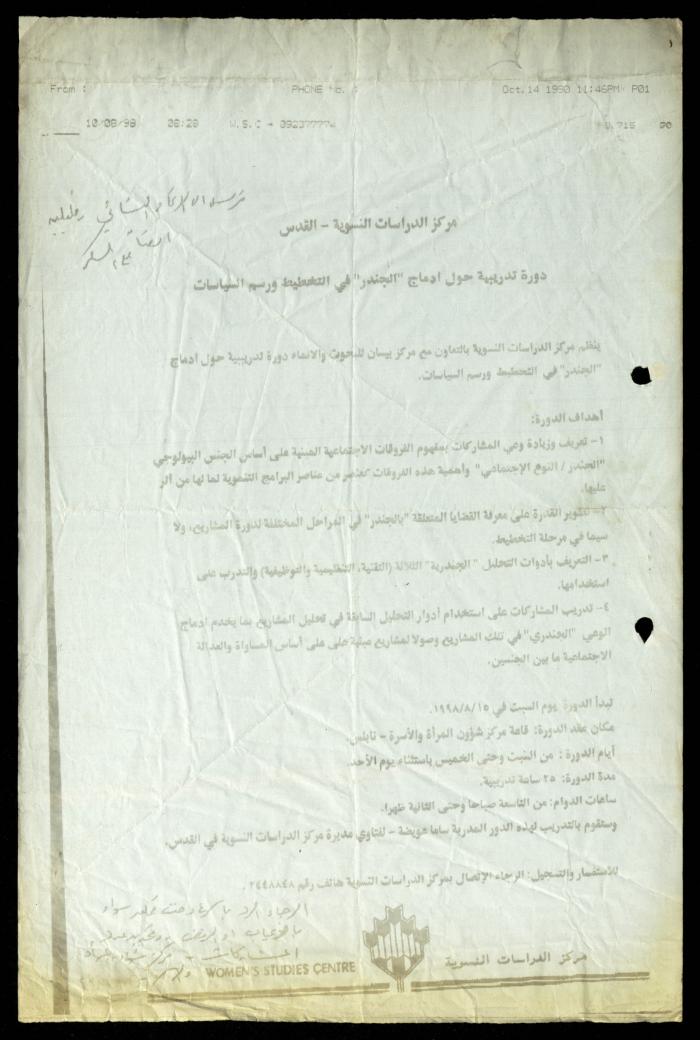 From : PHONE No. : Oct.14 1990 11:46PM P01
10/08/98 08:28 W.S.C → 092377774 715
مركز الدراسات النسوية - القدس
دورة تدريبية حول ادماج "الجندر" في التخطيط ورسم السياسات
ينظم مركز الدراسات النسوية بالتعاون مع مركز بيسان للبحوث والانماء دورة تدريبية حول ادماج
"الجندر" في التخطيط ورسم السياسات.
أهداف الدورة:
١- تعريف وزيادة وعي المشاركات بمفهوم الفروقات الاجتماعية المبنية على أساس الجنس البيولوجي
"الجندر / النوع الإجتماعي" وأهمية هذه الفروقات كعنصر من عناصر البرامج التنموية لما لها من أثر
عليها.
٢- تطوير القدرة على معرفة القضايا المتعلقة "بالجندر" في المراحل المختلفة لدورة المشاريع، ولا
سيما في مرحلة التخطيط.
٣- التعريف بأدوات التحليل "الجندرية" الثلاثة (التقنية، التنظيمية والتوظيفية) والتدرب على
استخدامها.
٤- تدريب المشاركات على استخدام أدوار التحليل السابقة في تحليل المشاريع بما يخدم ادماج
الوعي "الجندري" في تلك المشاريع وصولا لمشاريع مبنية على على أساس المساواة والعدالة
الاجتماعية ما بين الجنسين.
تبدأ الدورة يوم السبت في ١٩٩٨/٨/١٥.
مكان عقد الدورة: قاعة مركز شؤون المرأة والأسرة - نابلس.
أيام الدورة : من السبت وحتى الخميس باستثناء يوم الأحد.
مدة الدورة: ٢٥ ساعة تدريبية.
ساعات الدوام: من التاسعة صباحا وحتى الثانية ظهرا.
وستقوم بالتدريب لهذه الدور المدربة ساما عويضة - لفتاوي مديرة مركز الدراسات النسوية في القدس.
للأستفسار والتسجيل: الرجاء الإتصال بمركز الدراسات النسوية هاتف رقم ٢٤٤٨٨٤٨ .
الرجاء الرد
مركز الدراسات النسوية
WOMEN'S STUDIES CENTRE